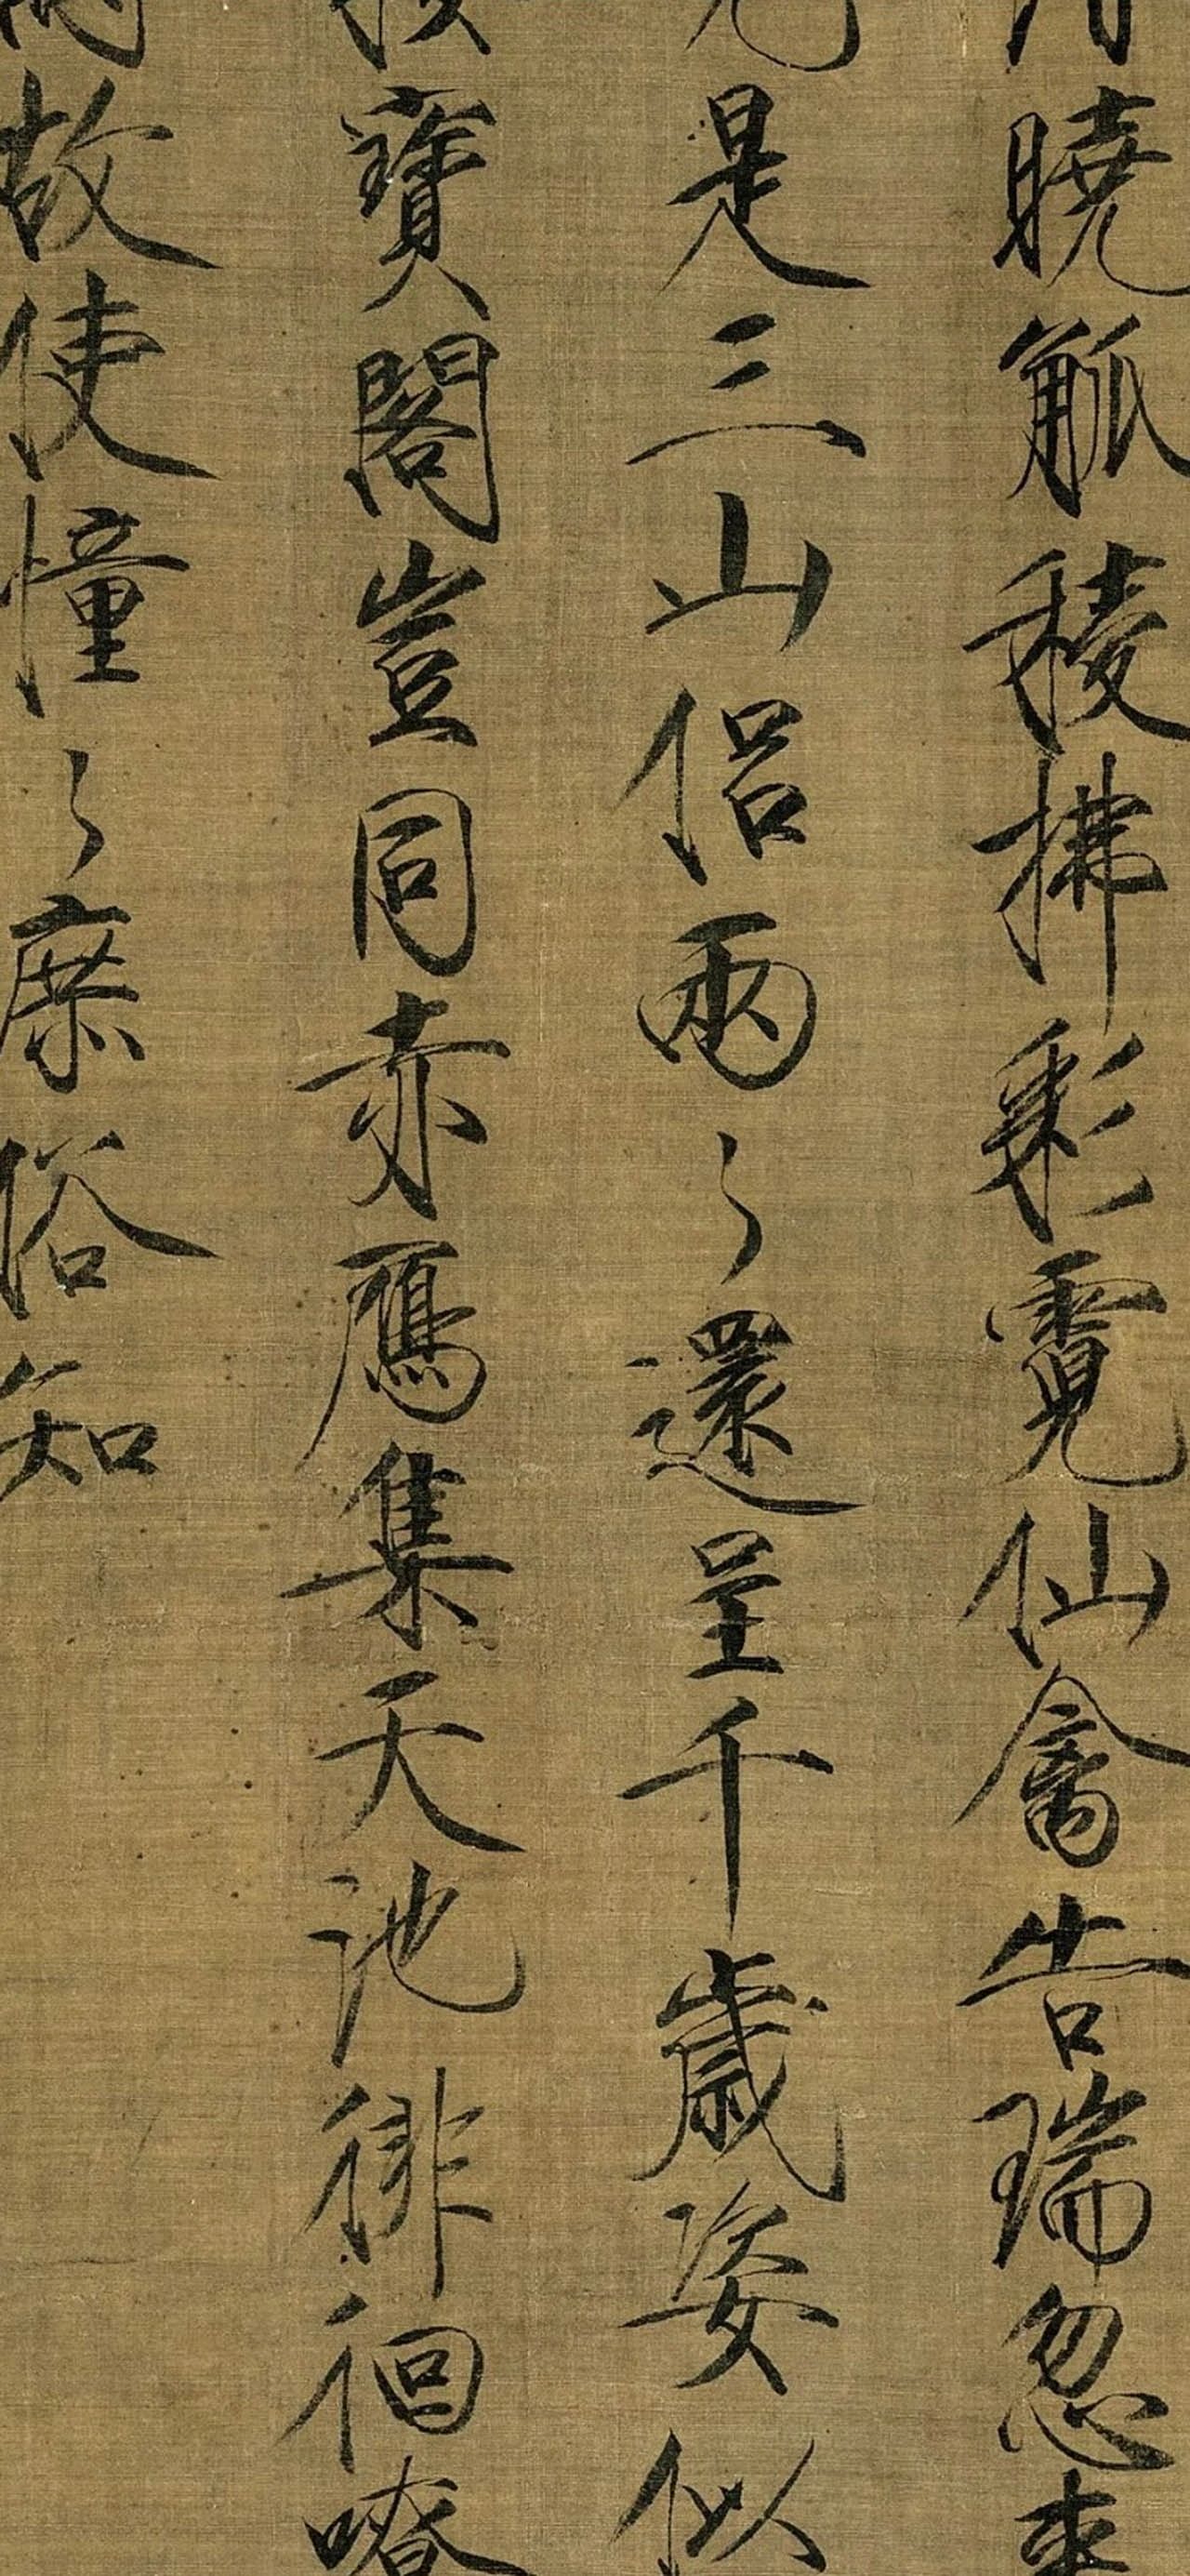 曉觚稜拂彩霓仙禽告瑞忽來
元是三山侶兩〻還呈千歲姿似
擬寳閣豈同赤鴈集天池徘徊嘹
故使憧〻庶俗知